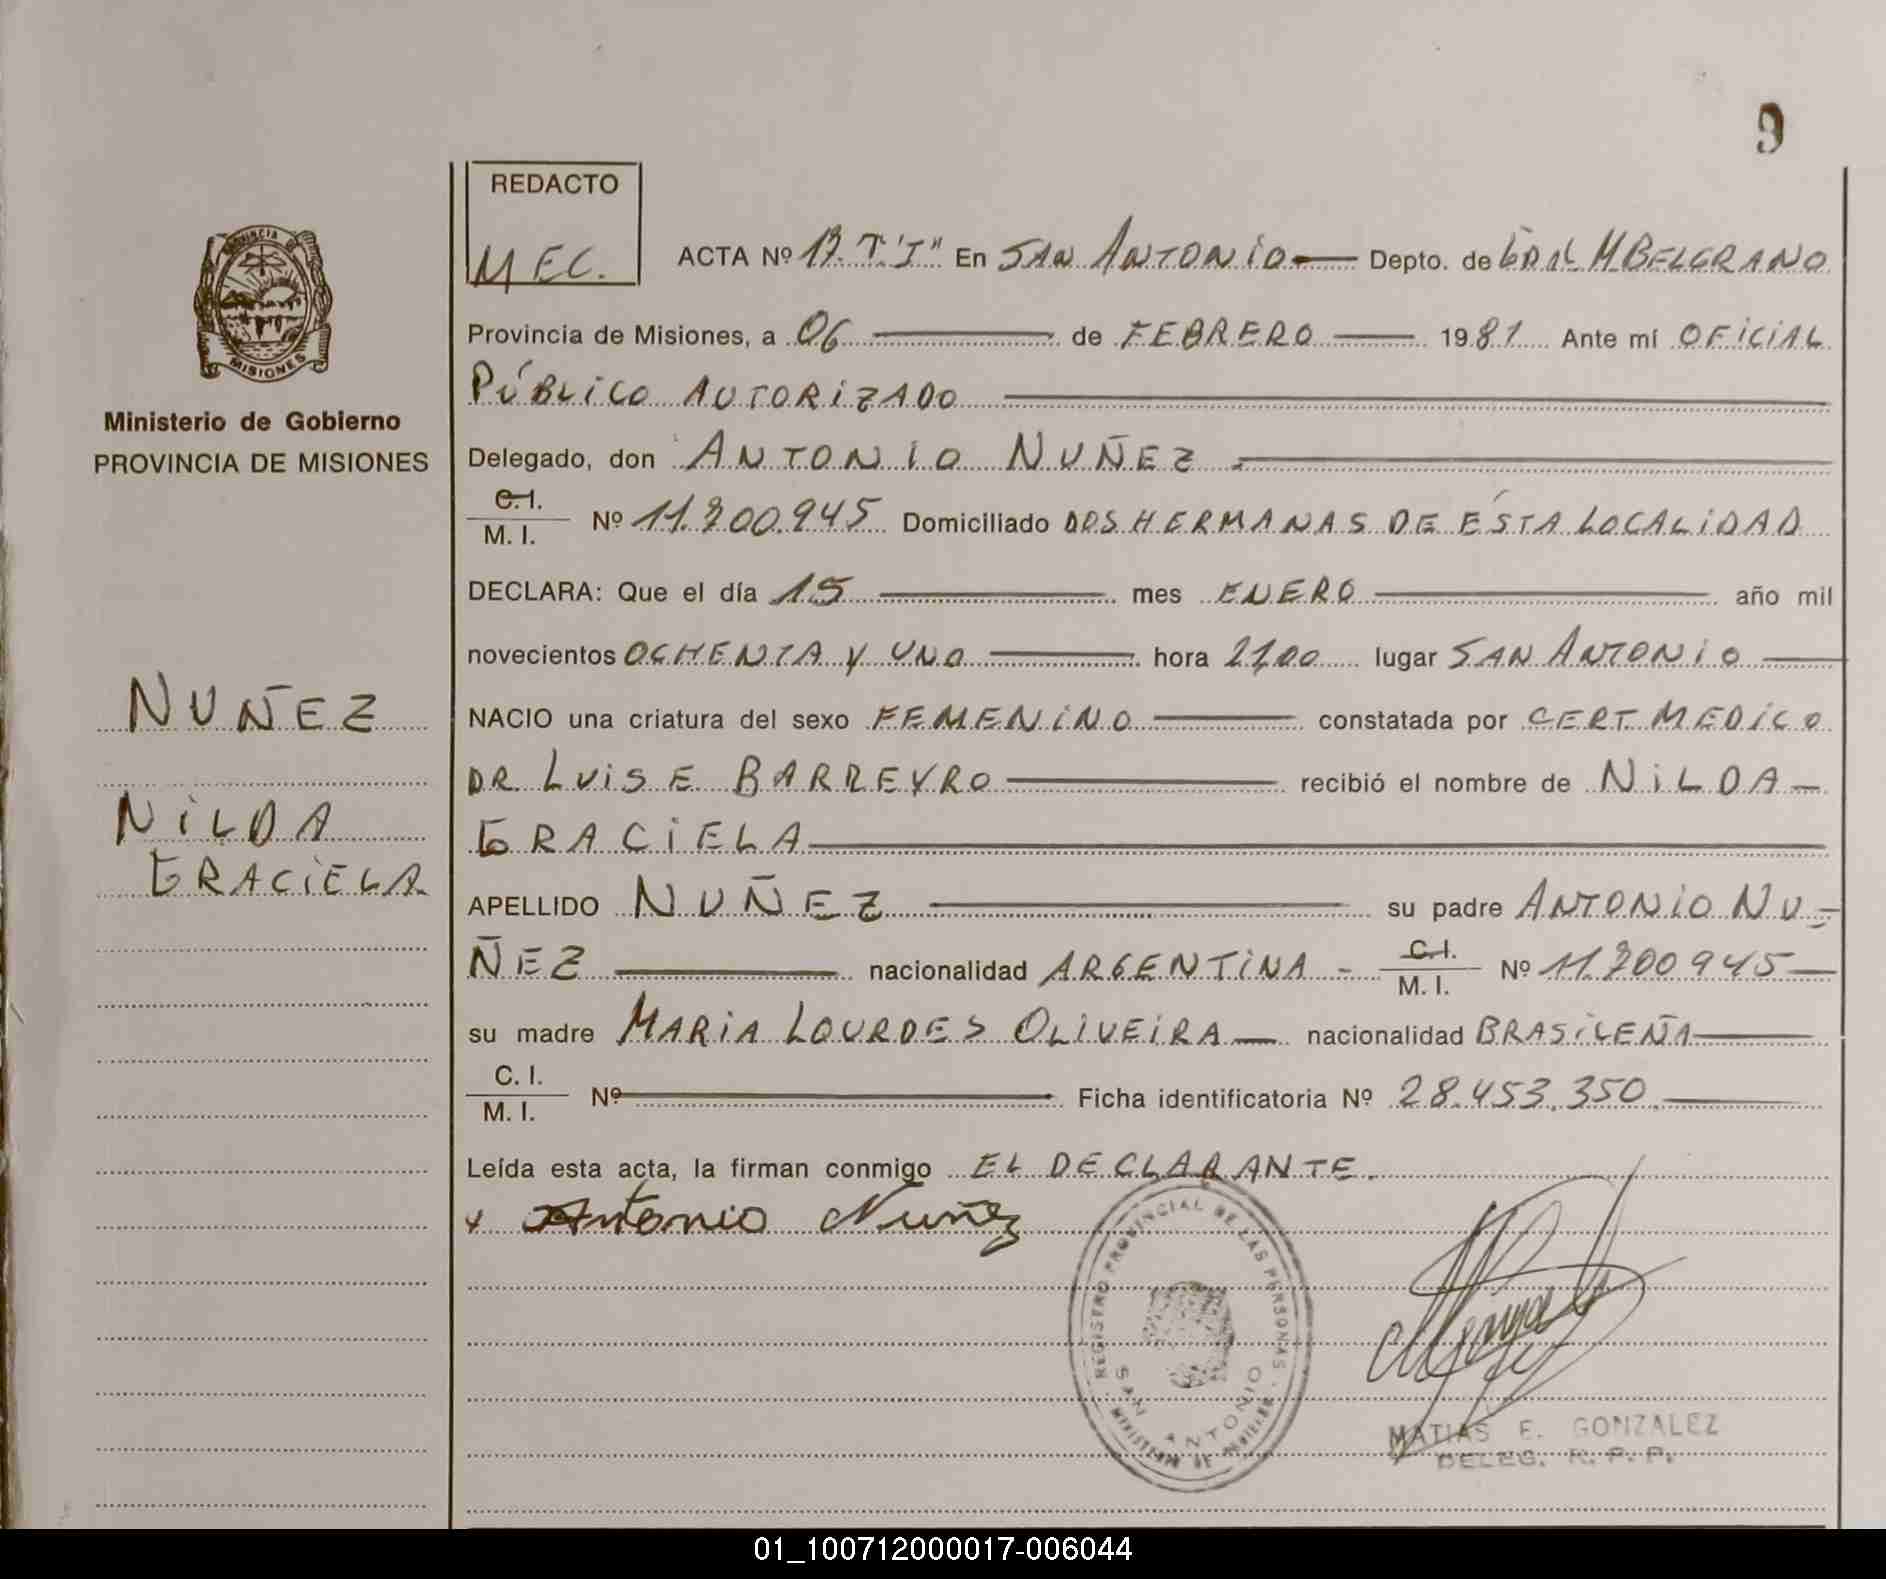 9
REDACTO
MEC.
ACTA Nº 13. T."I" En SAN ANTONIO Depto. de GRAL M BELGRANO
PROVINCIA DE
MISIONES
Ministerio de Gobierno
PROVINCIA DE MISIONES
NUÑEZ
NILDA
GRACIELA
Provincia de Misiones, a 06 de FEBRERO 1981 Ante mí OFICIAL
PÚBLICO AUTORIZADO
Delegado, don ANTONIO NUÑEZ
C.I.
M. I. Nº 11.200.945 Domiciliado DOS HERMANAS DE ÉSTA LOCALIDAD
DECLARA: Que el día 15 mes ENERO año mil
novecientos OCHENTA Y UNO hora 21,00 lugar SAN ANTONIO
NACIO una criatura del sexo FEMENINO constatada por CERT. MEDICO
DR. LUIS E BARREYRO recibió el nombre de NILDA
GRACIELA
APELLIDO NUÑEZ su padre ANTONIO NU-
ÑEZ nacionalidad ARGENTINA - C.I. M. I. Nº 11.200945
su madre MARIA LOURDES OLIVEIRA nacionalidad BRASILEÑA
C. I.
M. I. Nº Ficha identificatoria Nº 28.453.350
Leída esta acta, la firman conmigo EL DECLARANTE.
Antonio Nuñez
REGISTRO PROVINCIAL DE LAS PERSONAS
SAN ANTONIO
MATIAS E. GONZALEZ
DELEG. R. P. P.
01_100712000017-006044